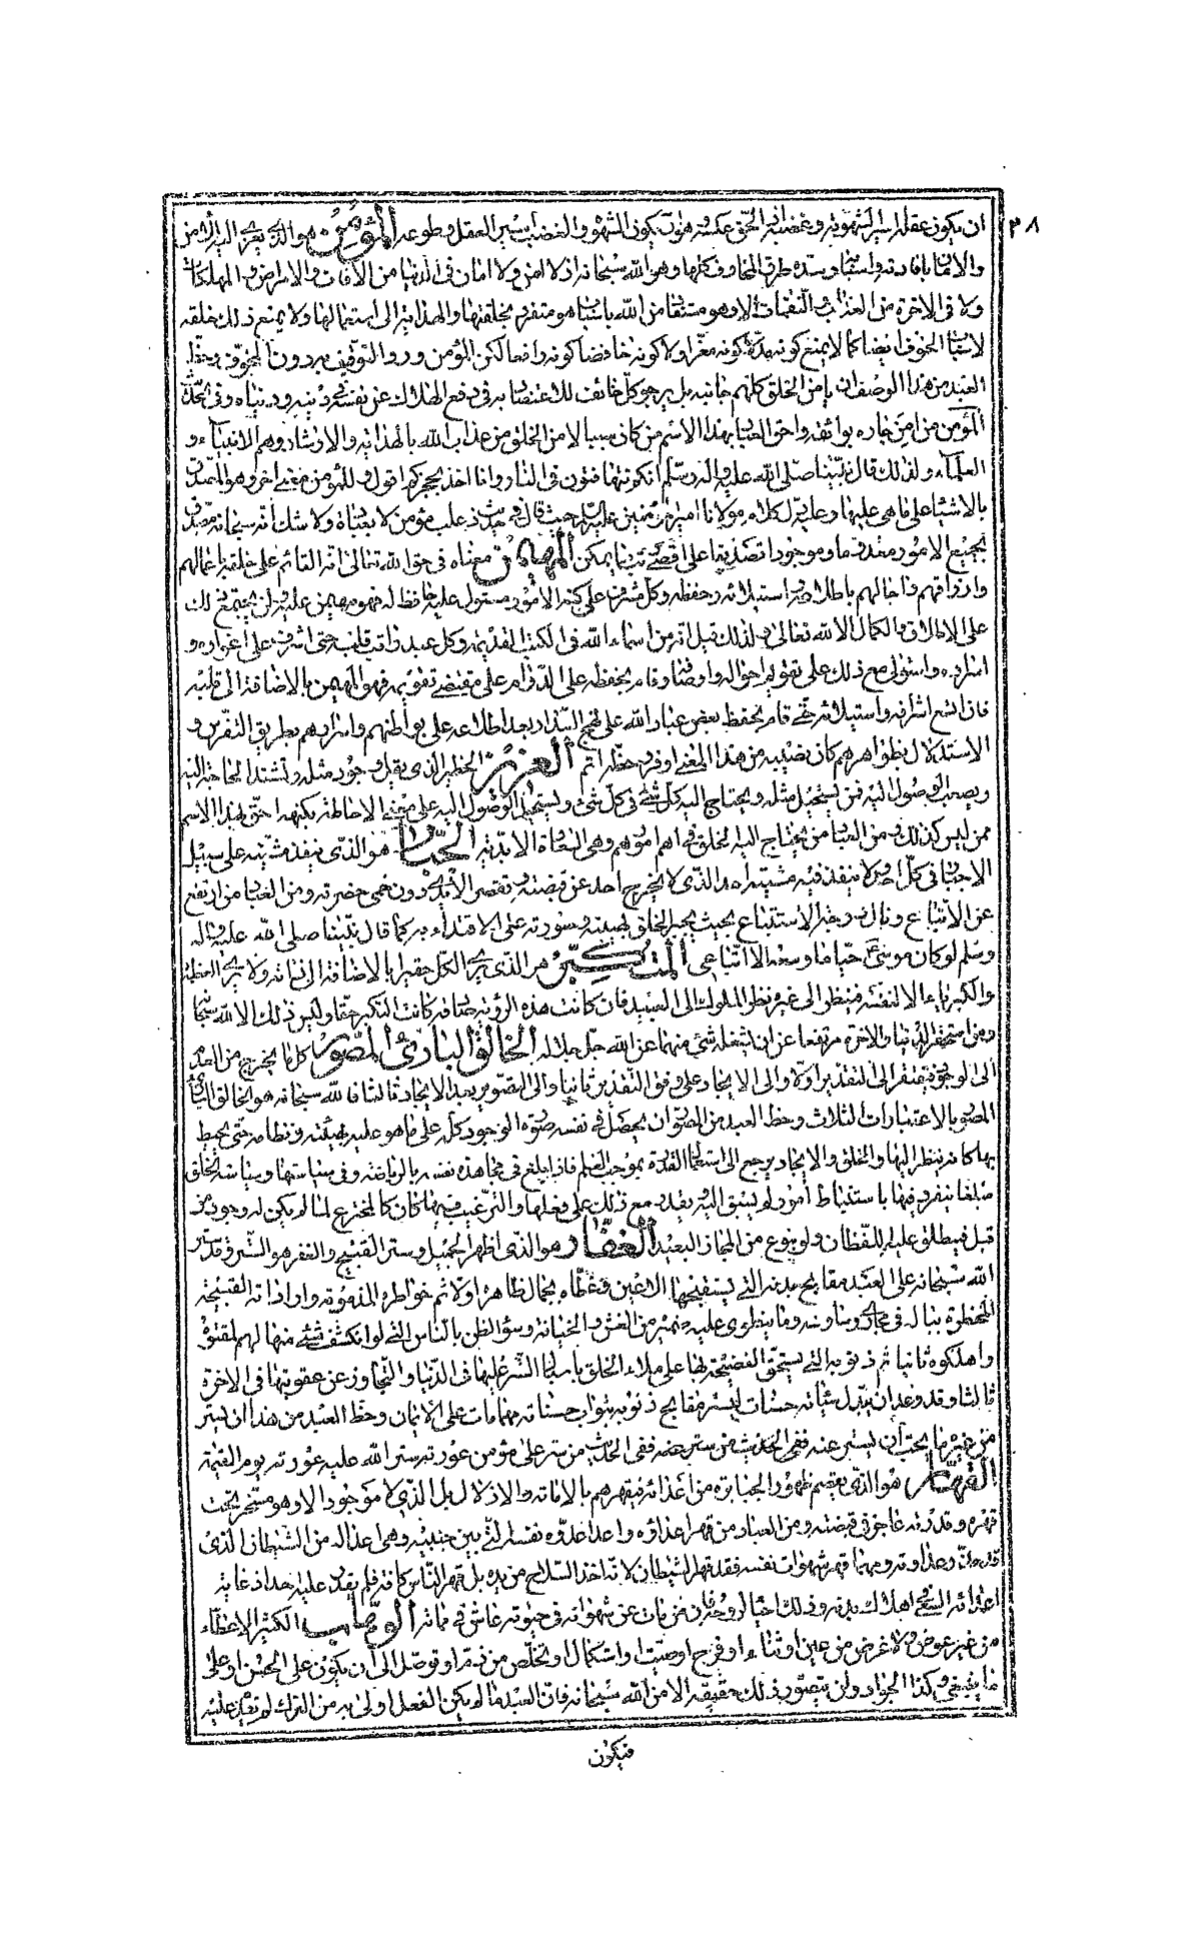 ٣٨
ان يكون عقله اسير شهوته وغضبه اذ الحق عكسه هو ان يكون الشهوة والغضب اسير العقل وطوعه المؤمن هو الذي يعزى اليه الأمن
والامان بافادته واسبابه وسده طرق المخاوف كلها وهو الله سبحانه اذ لا امن ولا امان في الدنيا من الآفات والامراض والمهلكات
ولا في الاخرة من العذاب والنقمات الا وهو مستفاد من الله باسباب هو متفرد بخلقتها والهداية الى استعمالها ولا يمنع ذلك خلقه
لاسباب الخوف ايضا كما لا يمنع كونه مذلا كونه معزا ولا كونه خافضا كونه رافعا لكن المؤمن ورد التوقيف به دون المخوف وحظ
العبد من هذا الوصف ان يأمن الخلق كلهم جانبه بل يرجو كل خائف للاعتضاد به في دفع الهلاك عن نفسه في دينه ودنياه وفي الحديث
المؤمن من امن جاره بوائقه واحق العباد بهذا الاسم من كان سببا لأمن الخلق من عذاب الله بالهداية والارشاد وهم الانبياء و
العلماء ولذلك قال نبينا صلى الله عليه واله وسلم انكم تتهافتون في النار وانا اخذ بحجزكم اقول وللمؤمن معنى اخر وهو المصدق
بالاشياء على ما هي عليها وعليه نزل كلام مولانا امير المؤمنين عليه السلام حيث قال في حديث ذعلب مؤمن لا بعبادة ولا شك انه سبحانه مصدق
بجميع الامور معدومها وموجودها تصديقا على اقصى ما يمكن المهيمن معناه في حق الله تعالى انه القائم على خلقه باعمالهم
وارزاقهم واجالهم باطلاعه واستيلائه وحفظه وكل مشرف على كنه الامور مستول عليه حافظ له فهو مهيمن عليه ولن يجتمع ذلك
على الاطلاق والكمال الا لله تعالى ولذلك قيل انه من اسماء الله في الكتب القديمة وكل عبد راقب قلبه حتى اشرف على اغواره و
اسراره واستولى مع ذلك على تقويم احواله واوصافه وقام بحفظه على الدوام على مقتضى تقويمه فهو المهيمن بالاضافة الى قلبه
فان اتسع اشرافه واستيلائه حتى قام بحفظ بعض عباد الله على نهج السداد بعد اطلاعه على بواطنهم واسرارهم بطريق التفرس و
الاستدلال بظواهرهم كان نصيبه من هذا المعنى اوفر وحظه اتم العزيز الخطير الذي يقل وجود مثله وتشتد الحاجة اليه
ويصعب الوصول اليه فمن يستحيل مثله ويحتاج اليه كل شئ في كل شئ ويستحيل الوصول اليه على معنى الاحاطة بكنهه احق بهذا الاسم
ممن ليس كذلك ومن العباد من يحتاج اليه الخلق في اهم امورهم وهي الحياة الابدية الجبار هو الذي ينفذ مشيته على سبيل
الاجبار في كل احد ولا ينفذ فيه مشية احد الذي لا يخرج احد عن قبضته وتقصر الأيدي دون حمى حضرته ومن العباد من ارتفع
عن الاتباع ونال درجة الاستتباع بحيث يجبر الخلق بهيئته وصورته على الاقتداء به كما قال نبينا صلى الله عليه واله
وسلم لو كان موسى حيا ما وسعه الا اتباعي المتكبر هو الذي يرى الكل حقيرا بالاضافة الى ذاته ولا يرى العظمة
والكبرياء الا لنفسه فينظر الى غيره نظر الملوك الى العبيد فان كانت هذه الرؤية صادقة كانت التكبر حقا وليس ذلك الا لله سبحانه
ومن استحقر الدنيا والاخرة مرتفعا عن ان يشغله شئ منهما عن الله جل جلاله الخالق البارئ المصور كل ما يخرج من العدم
الى الوجود فيفتقر الى التقدير اولا والى الايجاد على وفق التقدير ثانيا والى التصوير بعد الايجاد ثالثا فالله سبحانه هو الخالق البارئ
المصور بالاعتبارات الثلاث وحظ العبد من المصور ان يحصل في نفسه صورة الوجود كله على ما هو عليه بهيئته ونظامه حتى يحيط
بها كانه ينظر اليها والخلق والايجاد يرجع الى استعمال القدرة بموجب العلم فاذا بلغ في مجاهدة نفسه بالرياضة وفي سياستها وسياسة الخلق
مبلغا ينفرد فيها باستنباط امور لم يسبق اليها ويقدر مع ذلك على فعلها والترغيب فيها كان كالمخترع لما لم يكن له وجود من
قبل فيطلق عليه اللفظان ولو بنوع من المجاز البعيد الغفار هو الذي اظهر الجميل وستر القبيح والغفر هو الستر وقد ستر
الله سبحانه على العبد مقابح بدنه التي يستقبحها الاعين وغطاه بجمال ظاهره اولا ثم خواطره المذمومة واراداته القبيحة
المخطرة بباله في مجاري وساوسه وما ينطوي عليه ضميره من الغش والخيانة وسوء الظن بالناس التي لو انكشف شئ منها لهم لمقتوه
واهلكوه ثانيا ثم ذنوبه التي يستحق الفضيحة بها على ملاء الخلق باسبال الستر عليها في الدنيا والتجاوز عن عقوبتها في الاخرة
ثالثا وقد وعد ان يبدل سيئاته حسنات ليستر مقابح ذنوبه بثواب حسناته مهما مات على الايمان وحظ العبد من هذا ان يستر
من غيره ما يحب ان يستر عنه ففي الحديث من ستر على مؤمن عورته ستر الله عليه عورته يوم القيمة
القهار هو الذي يقصم ظهور الجبابرة من اعدائه فيقهرهم بالاماتة والاذلال بل الذي لا موجود الا وهو مسخر تحت
قهره وقدرته عاجز في قبضته ومن العباد من قهر اعداؤه واعدا عدوه نفسه التي بين جنبيه وهي اعدا له من الشيطان الذي
عداوته ومهما قهر شهوات نفسه فقد قهر الشيطان لانه اخذ السلاح من يده بل قهر الناس كافة فلم يقدر عليه احد اذ غاية
اعدائه السعي في اهلاك بدنه وذلك احياء لروحه فان من مات عن شهواته في حيوته عاش في مماته الوهاب الكثير الاعطاء
من غير عوض ولا غرض من عين او ثناء او فرح او صيت او استكمال او تخلص من ذم او توصل الى ان يكون على الحسن او على
ما ينبغي وكذا الجواد ولن يتصور ذلك حقيقة الا من الله سبحانه فان العبد ما لم يكن الفعل اولى به من الترك لم يقدم عليه
فيكون